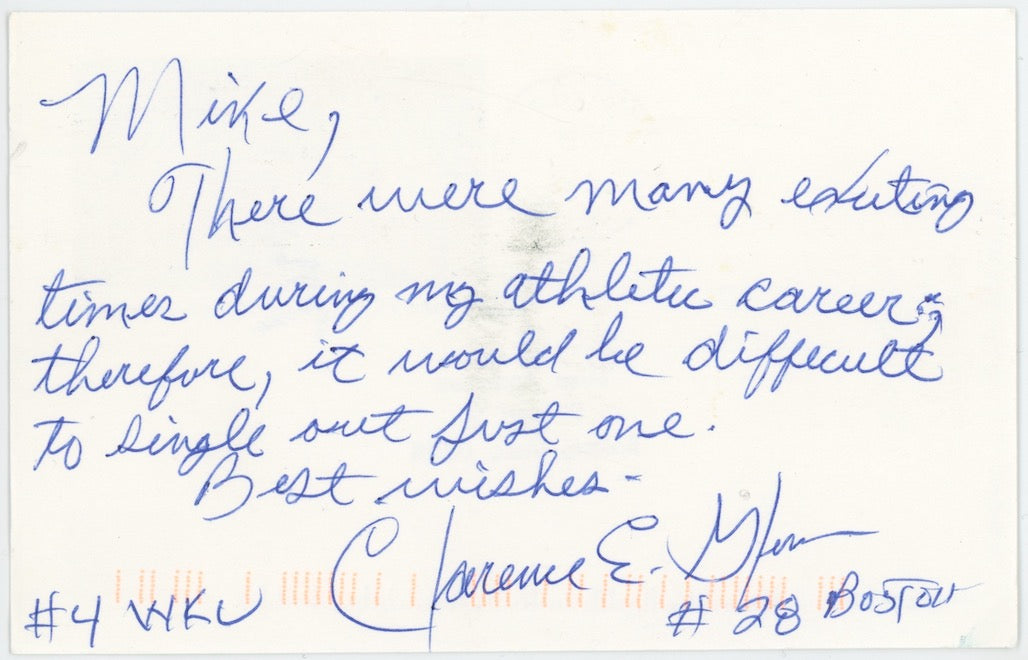 Mike,
There were many exciting
times during my athletic career;
therefore, it would be difficult
to single out just one.
Best wishes-
Clarence E. Glover
#4 WKU #28 Boston